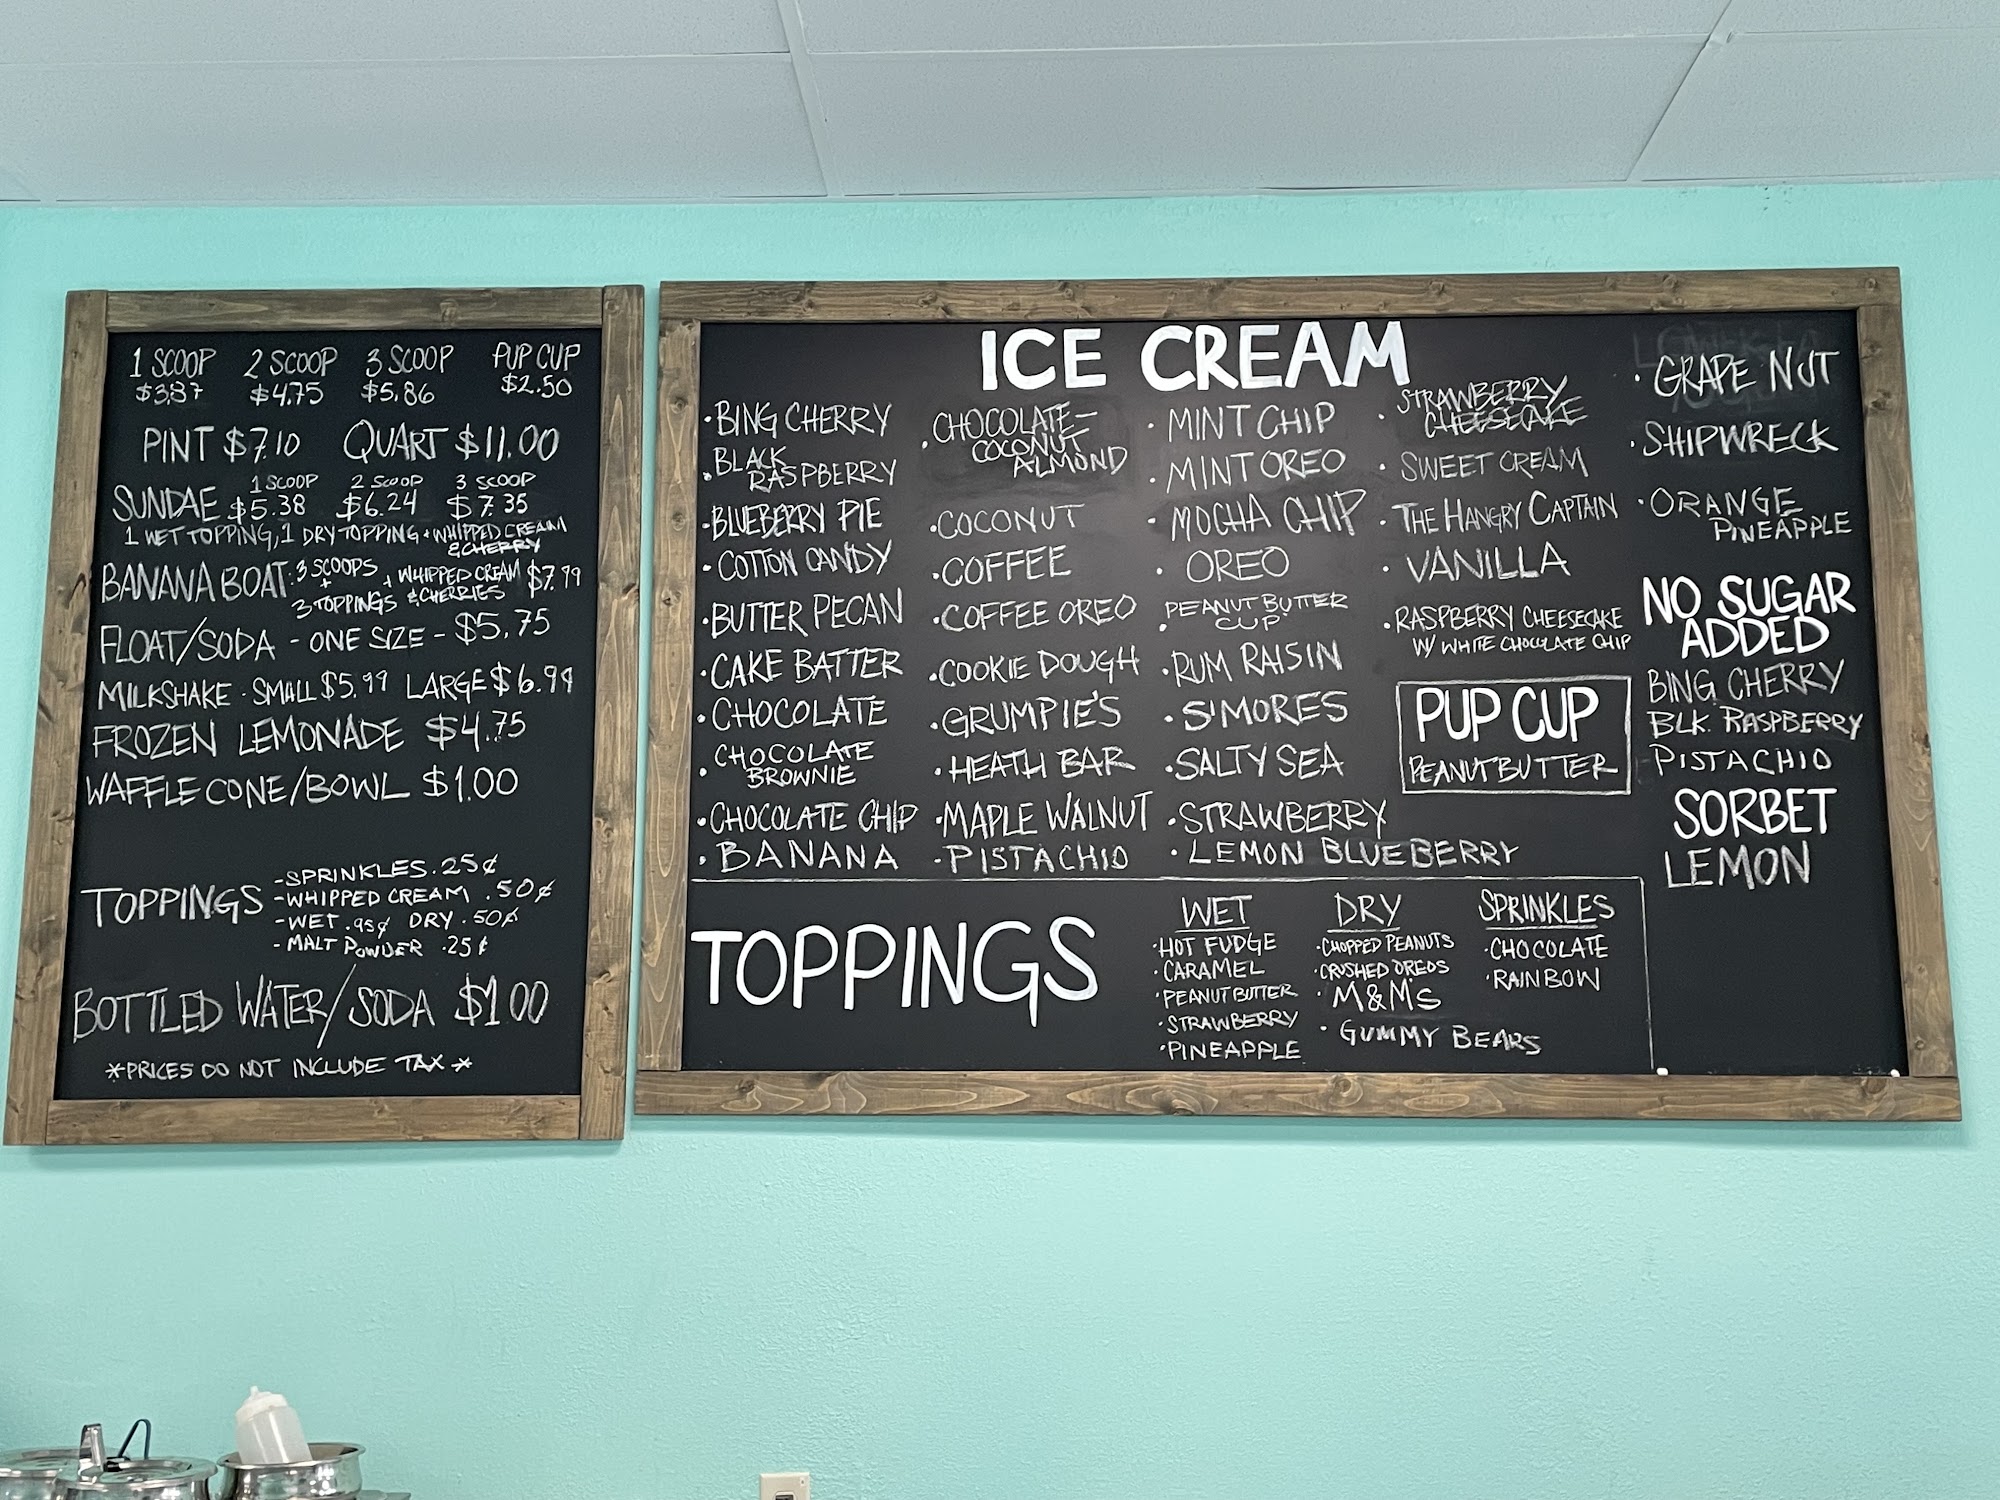 1 SCOOP 2 SCOOP 3 SCOOP PUP CUP
$3.87 $4.75 $5.86 $2.50
PINT $7.10 QUART $11.00
1 SCOOP 2 SCOOP 3 SCOOP
SUNDAE $5.38 $6.24 $7.35
1 WET TOPPING, 1 DRY TOPPING + WHIPPED CREAM
& CHERRY
BANANA BOAT: 3 SCOOPS + WHIPPED CREAM $7.99
+ 3 TOPPINGS & CHERRIES
FLOAT/SODA - ONE SIZE - $5.75
MILKSHAKE - SMALL $5.99 LARGE $6.99
FROZEN LEMONADE $4.75
WAFFLE CONE/BOWL $1.00
TOPPINGS
- SPRINKLES .25¢
- WHIPPED CREAM .50¢
- WET .95¢ DRY .50¢
- MALT POWDER .25¢
BOTTLED WATER/SODA $1.00
*PRICES DO NOT INCLUDE TAX*
ICE CREAM
• BING CHERRY
• BLACK
RASPBERRY
• BLUEBERRY PIE
• COTTON CANDY
• BUTTER PECAN
• CAKE BATTER
• CHOCOLATE
• CHOCOLATE
BROWNIE
• CHOCOLATE CHIP
• BANANA
• CHOCOLATE-
COCONUT
ALMOND
• COCONUT
• COFFEE
• COFFEE OREO
• COOKIE DOUGH
• GRUMPIE'S
• HEATH BAR
• MAPLE WALNUT
• PISTACHIO
• MINT CHIP
• MINT OREO
• MOCHA CHIP
• OREO
• PEANUT BUTTER
CUP
• RUM RAISIN
• S'MORES
• SALTY SEA
• STRAWBERRY
• LEMON BLUEBERRY
• STRAWBERRY
CHEESECAKE
• SWEET CREAM
• THE HANGRY CAPTAIN
• VANILLA
• RASPBERRY CHEESECAKE
W/ WHITE CHOCOLATE CHIP
PUP CUP
PEANUT BUTTER
• GRAPE NUT
• SHIPWRECK
• ORANGE
PINEAPPLE
NO SUGAR
ADDED
BING CHERRY
BLK. RASPBERRY
PISTACHIO
SORBET
LEMON
TOPPINGS
WET
• HOT FUDGE
• CARAMEL
• PEANUT BUTTER
• STRAWBERRY
• PINEAPPLE
DRY
• CHOPPED PEANUTS
• CRUSHED OREOS
• M&M'S
• GUMMY BEARS
SPRINKLES
• CHOCOLATE
• RAINBOW